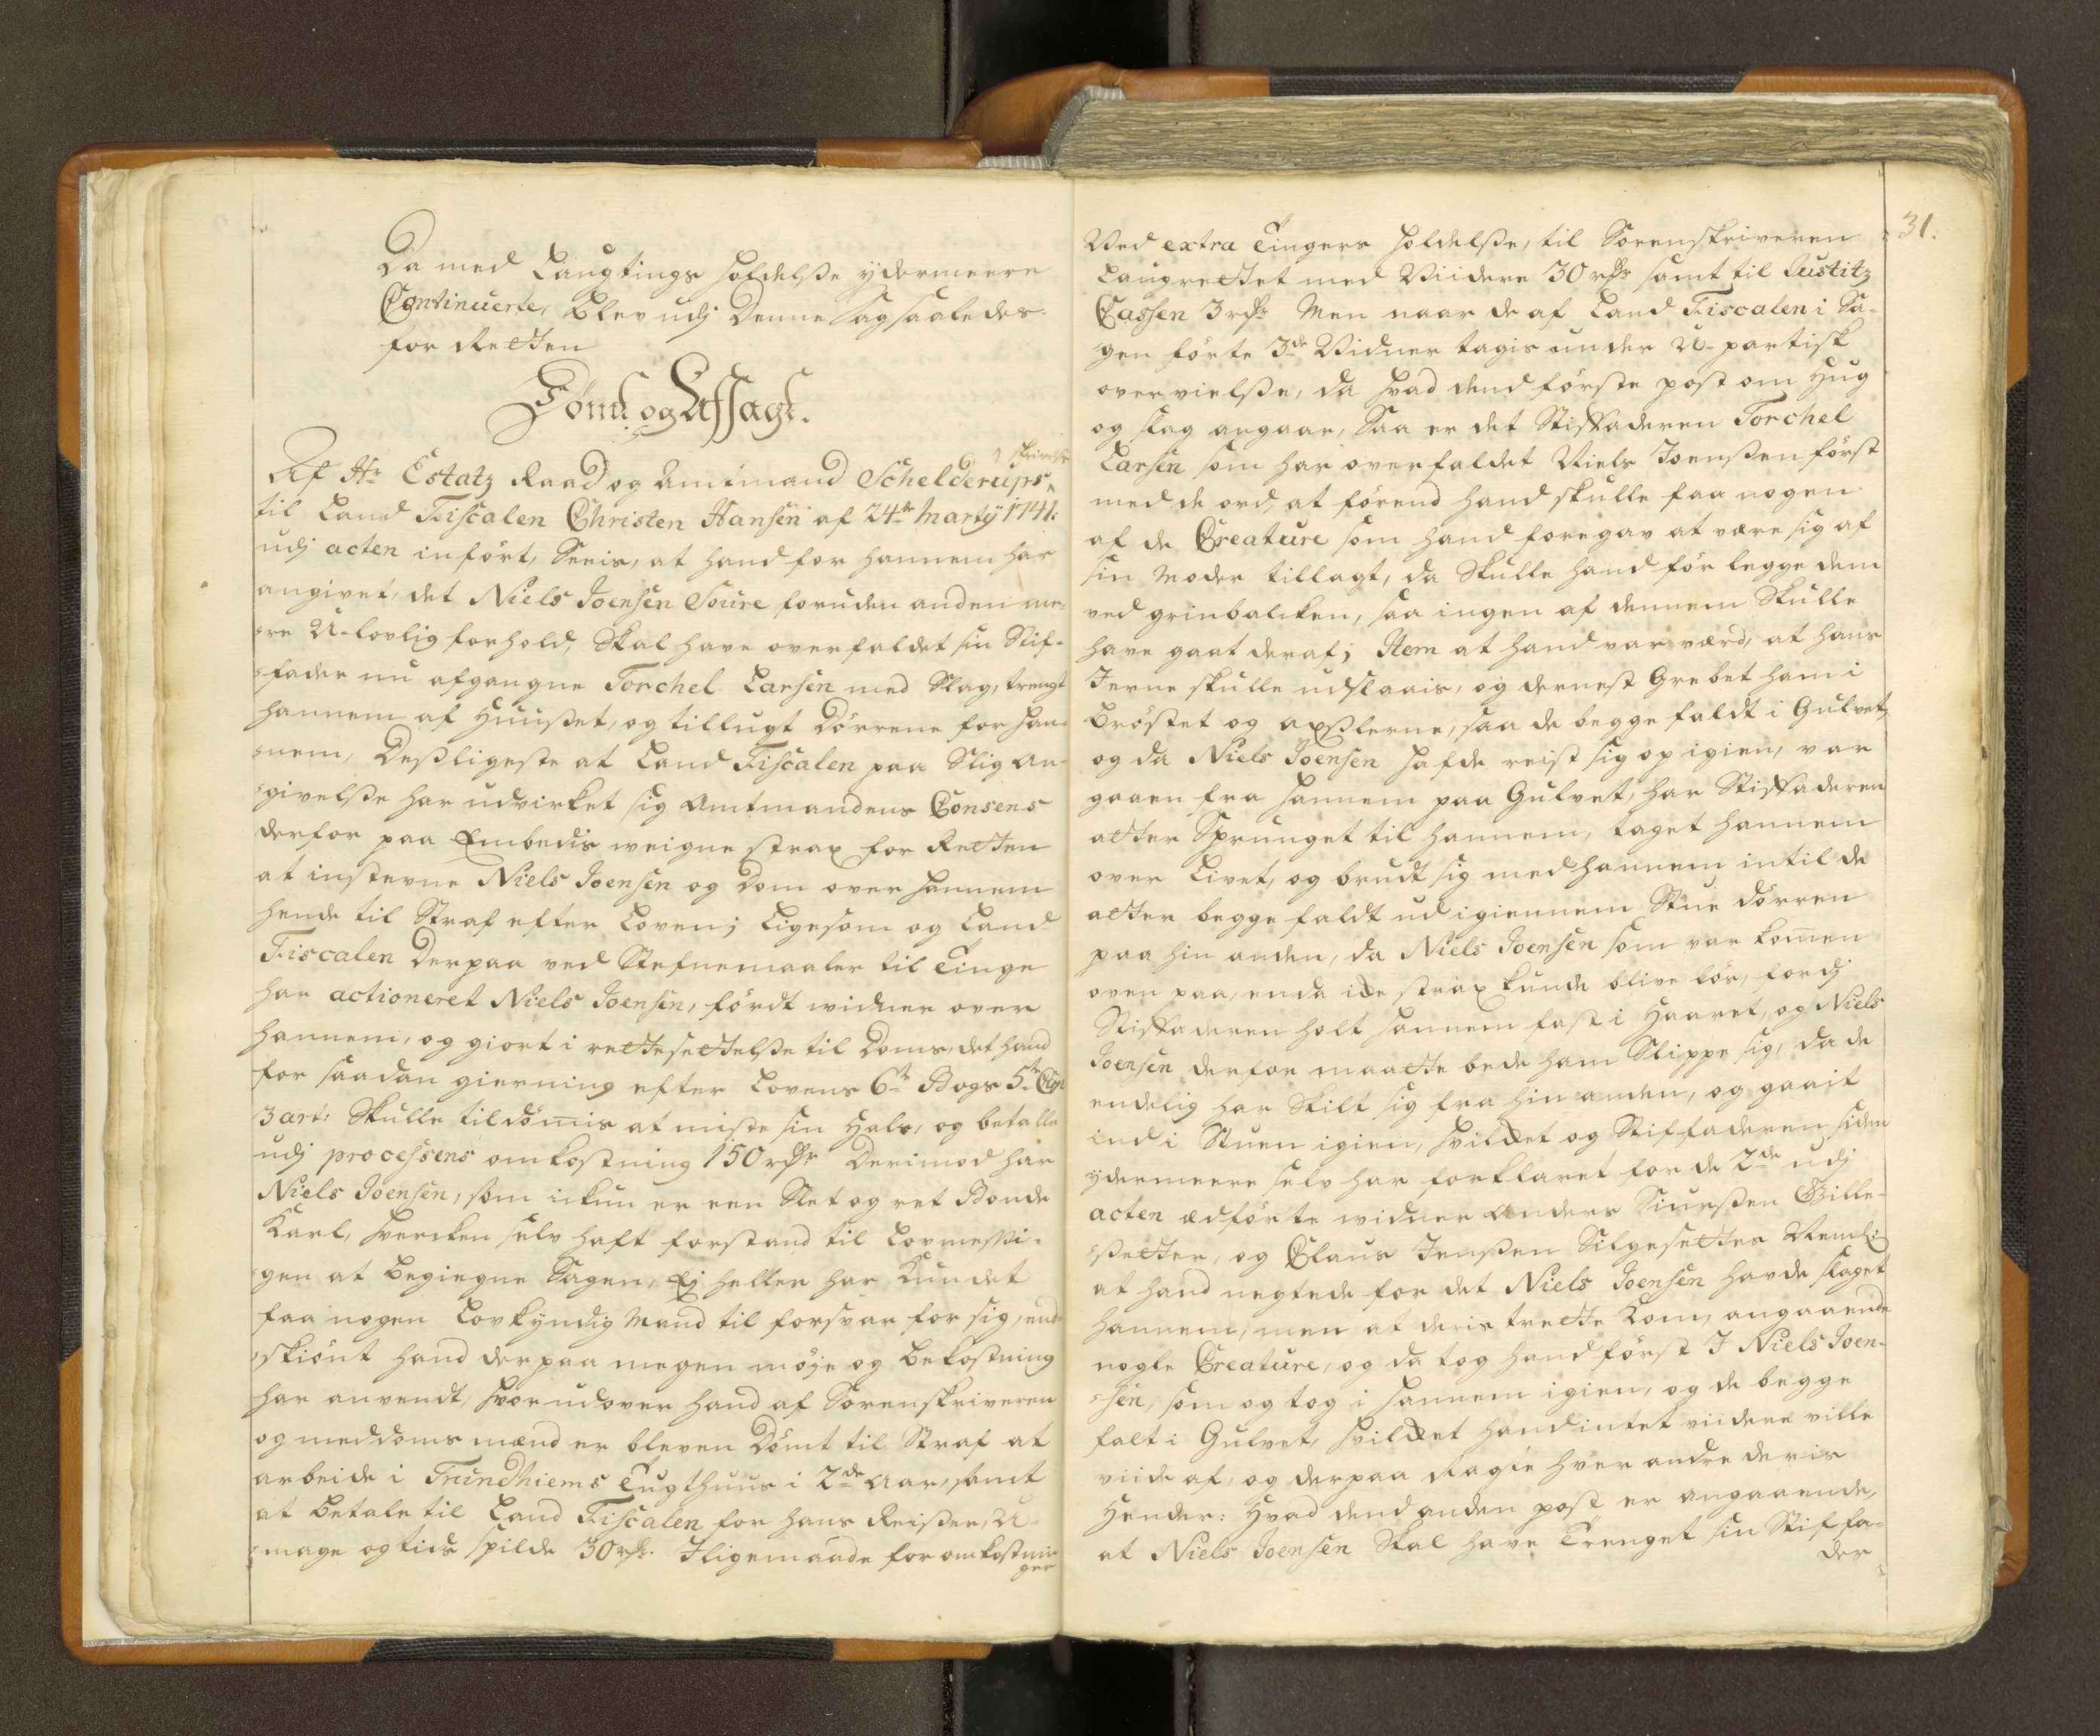 Da med Laugtings holdelße ÿdermeere
Continuerte, blev udj Denne Sag saaledes
for Retten
Dömt og Afsagt.
Af Hr Estatz Raad og Amtmand Schelderups
skrivelße
til Land Fiscalen Christen Hansen af 24de Martÿ 1741:
udj acten infört, Seeis, at hand for hannem har
angivet, det Niels Joensen Soure foruden anden me-
re U-lovlig forhold, Skal have overfaldet sin Stif-
fader nu afgangne Torchel Larsen med Slag, trengt
hannem af Huuset, og tillugt Dörrene for han-
nem, Desligeste at Land Fiscalen paa Slig An-
givelße har udvirket sig Amtmandens Consens
derfor paa Embedis weigne strax for Retten
at instevne Niels Joensen og Dom over hannem
hende til Straf efter Loven; Ligesom og Land
Fiscalen Derpaa ved Stefnemaaler til Tinge
har actioneret Niels Joensen, fördt widner over
hannem, og giort i rettesettelße til Doms, det hand
for saadan gierning efter Lovens 6te Bogs 5te Cap
3 art: Skulle tildömis at miste sin Hals, og betalle
udj processens omkostning 150 rdr Derimod har
Niels Joensen, som ickun er een Slet og ret Bonde
Karl, hvercken selv haft forstand til Lovmessi-
gen at begiegne Sagen, Ej heller har Kundet
faa nogen Lovkÿndig Mand til forsvar for sig, end
skiönt hand derpaa megen möje og bekostning
har anvendt, hvorudover hand af Sorenskriveren
og meddoms mænd er bleven Dömt til Straf at
arbeide i Trundhiems Tugthuus i 2de Aar, samt
at betale til Land Fiscalen for hans Reißer, U-
mage og tids spilde 30 rdr. Iligemaade for omkostnin
ger
31.
Ved extra Tingers holdelße, til Sorenskriveren
Laugrettet med Viidere 30 rdr samt til Justitz
Cassen 3 rdr Men naar de af Land Fiscalen i Sa-
gen förte 3de Vidner tagis under U-partisk
overvielße, da hvad dend förste post om Hug
og slag angaar, Saa er det Stiffaderen Torchel
Larsen som har overfaldet Niels Joensen först
med de ord, at förend hand skulle faa nogen
af de Creature som hand foregav at være sig af
sin Moder tillagt, da Skulle hand för legge dem
ved grinbalcken, saa ingen af dennem Skulle
have gaat deraf; Item at hand var værd, at hans
Ierne skulle udslaais, og dernest Grebet ham i
bröstet og Axßlerne, saa de begge faldt i Gulvet,
og da Niels Joensen hafde reist sig op igien, var
gaaen fra hannem paa Gulvet, har Stiffaderen
atter Sprunget til hannem, taget hannem
over Livet, og brudt sig med hannem, intil de
atter begge faldt ud igiennem Stue dörren
paa hin anden, da Niels Joensen som var komen
oven paa, enda icke strax kunde blive lös, fordj
Stiffaderen holt hannem fast i Haaret, og Niels
Joensen derfor maatte bede ham Slippe sig, da de
endelig har Skilt sig fra hin anden, og gaait
ind i Stuen igien, hvilket og Stiffaderen siden
ÿdermeere selv har forklaret for de 2de udj
acten ædförte widner Anders Siurßen Gille-
setter, og Claus Jenßen Silgesetter Neml:
at hand negtede for det Niels Joensen havde slaget
hannem, men at deris trette kom, angaaende
nogle Creature, og da tog hand först I Niels Joen-
sen, som og tog i hannem igien, og de begge
falt i Gulvet, hvilket hand intet viidere ville
viide af, og derpaa Ragte hver andre deris
Hender: Hvad dend anden post er angaaende,
at Niels Joensen Skal have Trenget sin Stiffa-
der